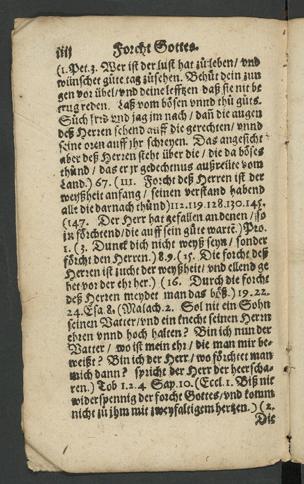 iiij Forcht Gottes.
(1. Pet. 3. Wer ist der lust hat zů leben / vnd
wünschet gůte tag zůsehen. Behůt dein zun
gen vor übel / vnd deine lefftzen daß sie nit be
trug reden. Laß vom bösen vnnd thů gůts.
Sůch frid vnd jag jm nach / dañ die augen
deß Herren sehend auff die gerechten / vnnd
seine oren auff jhr schreyen. Das angesicht
aber deß Herren steht über die / die da böses
thůnd / das er jr gedechtnus außreüte vom
Land.) 67. (111. Forcht deß Herren ist der
weyßheit anfang / seinen verstand habend
alle die darnach thůnd) 112. 119. 128. 130. 145.
(147. Der Herr hat gefallen an denen / so
jn förchtend / die auff sein güte wartē.) Pro.
1. (3. Dunck dich nicht weyß seyn / sonder
förcht den Herren.) 8. 9. (15. Die forcht deß
Herren ist zucht der weyßheit / vnd ellend ge
het vor der ehr her.) (16. Durch die forcht
deß Herren meydet man das böß.) 19. 22.
24. Esa. 8. (Malach. 2. Sol nit ein Sohn
seinen Vatter / vnd ein knecht seinen Herrn
ehren vnnd hoch halten? Bin ich nun der
Vatter / wo ist mein ehr / die man mir be-
weißt? Bin ich der Herr / wo förchtet man
mich dann? spricht der Herr der heerscha-
ren.) Tob 1. 2. 4 Sap. 10. (Eccl. 1. Biß nit
widerspennig der forcht Gottes / vnd komm
nicht zů jhm mit zweyfaltigem hertzen.) (2.
Die